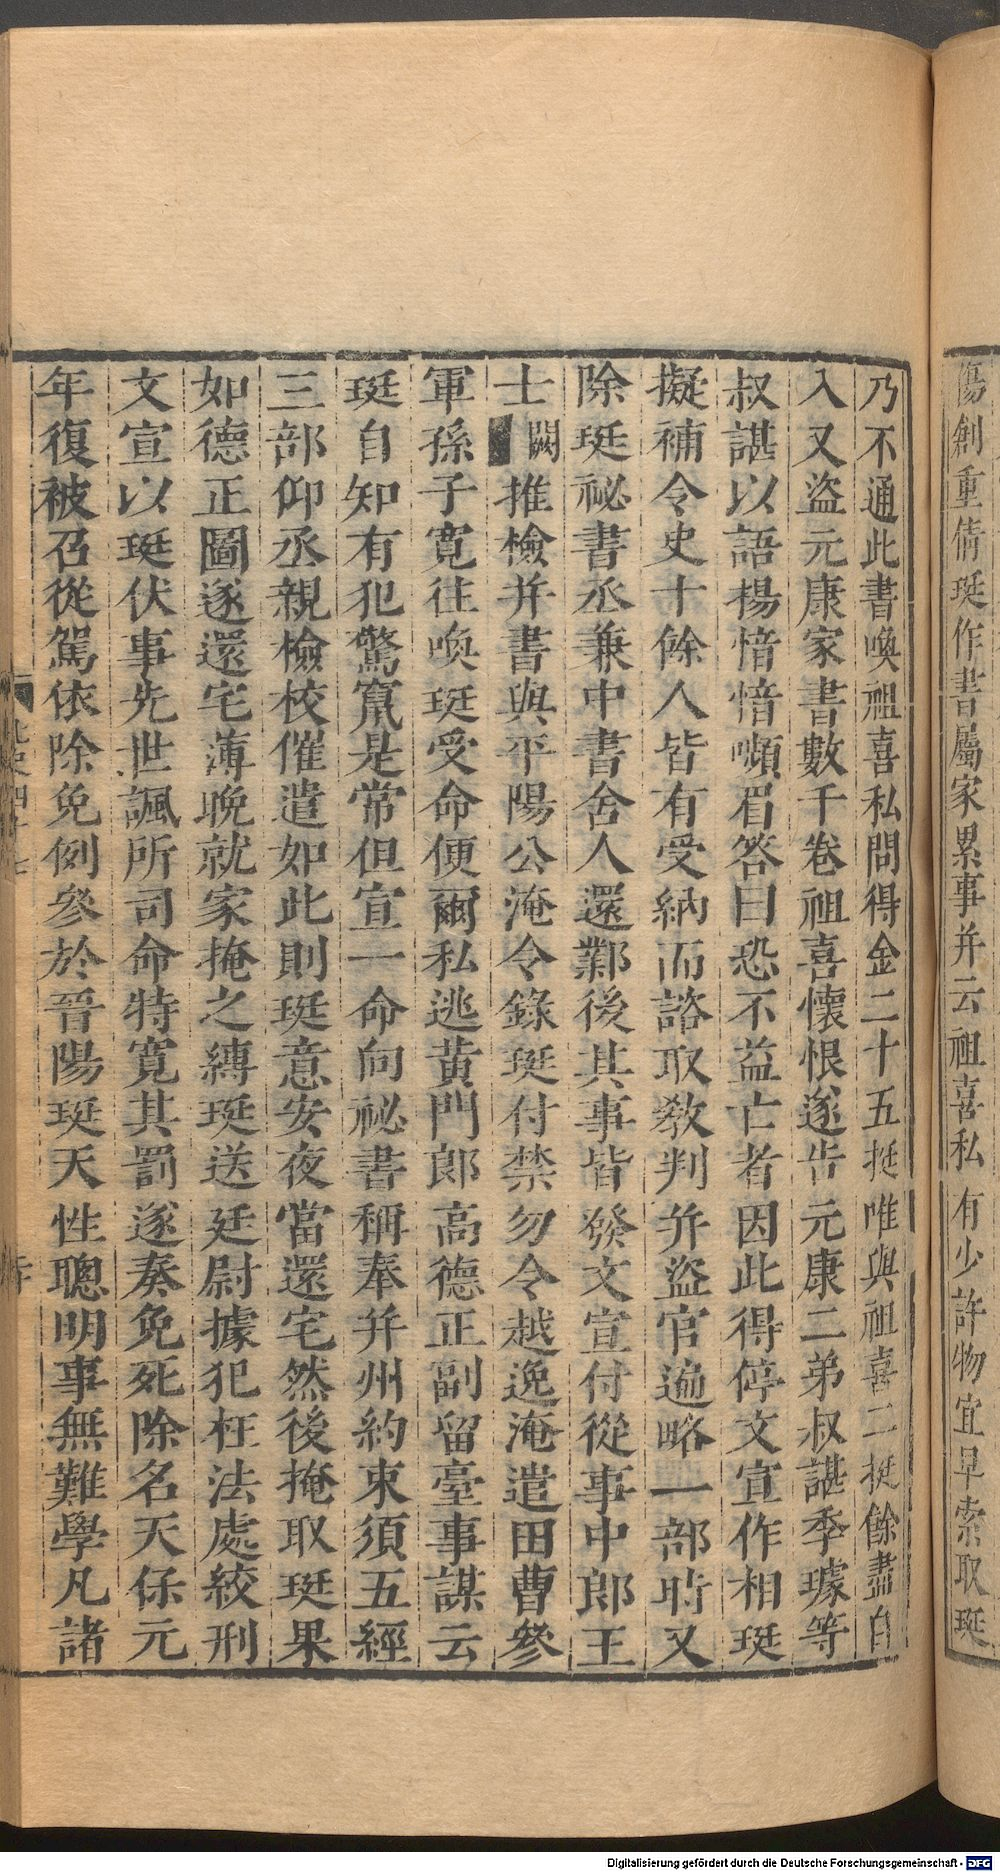 傷創重倩珽作書屬家累事并云祖喜私有少許物宜早索取珽
乃不通此書喚祖喜私問得金二十五挺唯與祖喜二挺餘盡自
入又盜元康家書數千卷祖喜懷恨遂告元康二弟叔諶季璩等
叔諶以語楊愔愔嚬眉答曰恐不益亡者因此得停文宣作相珽
擬補令史十餘人皆有受納而諮取敎判并盜官遍略一部時又
除珽祕書丞兼中書舍人還鄴後其事皆發文宣付從事中郎王
士闕推檢并書與平陽公淹令錄珽付禁勿令越逸淹遣田曹參
軍孫子寛往喚珽受命便爾私逃黃門郎高德正副留臺事謀云
珽自知有犯驚竄是常但宣一命向祕書稱奉并州約束須五經
三部仰丞親檢校催遣如此則珽意安夜當還宅然後掩取珽果
如德正圖遂還宅薄晚就家掩之縛珽送廷尉據犯枉法處絞刑
文宣以珽伏事先世諷所司命特寛其罰遂奏免死除名天保元
年復被召從駕依除免例參於晉陽珽天性聰明事無難學凡諸
Digitalisierung gefördert durch die Deutsche Forschungsgemeinschaft - DFG